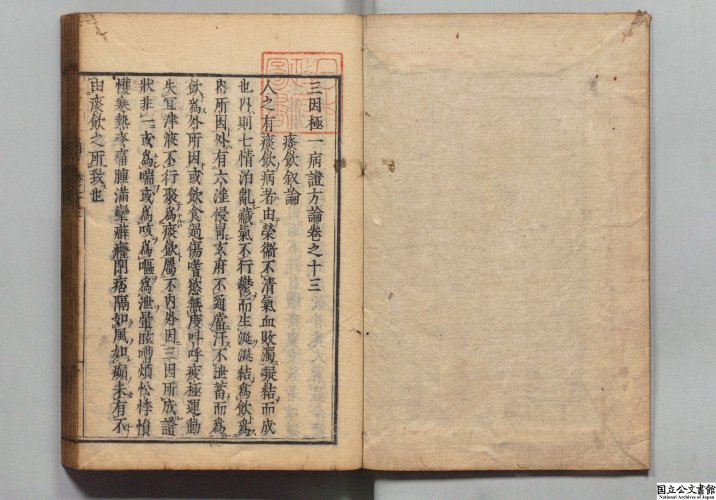 三因極一病證方論卷之十三
痰飲叙論
人之有痰飲病者由榮衞不清氣血敗濁凝結而成
也內則七情泊亂藏氣不行鬱而生涎涎結爲飲爲
內所因外有六淫侵冒玄府不通當汗不泄蓄而爲
飲爲外所因或飲食過傷嗜慾無度叫呼疲極運動
失宜津液不行聚爲痰飲屬不內外因三因所成證
狀非一或爲喘或爲咳爲嘔爲泄暈眩嘈煩忪悸慎
懼寒熱疼痛腫滿攣癖癃閉痞隔如風如癲未有不
由痰飲之所致也
国立公文書館
National Archives of Japan